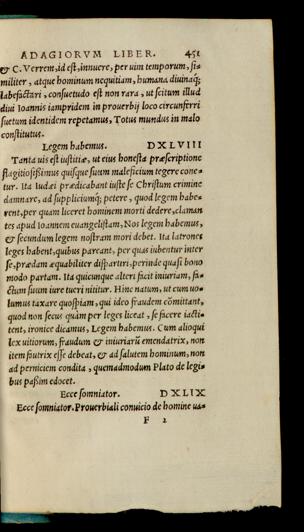 ADAGIORVM LIBER. 451
& C. Verrem, id est, innuere, per uim temporum, si-
militer, atque hominum nequitiam, humana diuinaq;
labefactari, consuetudo est non rara, ut scitum illud
diui Ioannis iampridem in prouerbij loco circunferri
suetum identidem repetamus, Totus mundus in malo
constitutus.
Legem habemus. DXLVIII
Tanta uis est iustitiæ, ut eius honesta præscriptione
flagitiosißimus quisque suum maleficium tegere cone-
tur. Ita Iudæi prædicabant iuste se Christum crimine
damnare, ad suppliciumq; petere, quod legem habe-
rent, per quam liceret hominem morti dedere, claman
tes apud Ioannem euangelistam, Nos legem habemus,
& secundum legem nostram mori debet. Ita latrones
leges habent, quibus pareant, per quas iubentur inter
se, prædam æquabiliter dispartiri, perinde quasi bono
modo partam. Ita quicunque alteri facit iniuriam, fa-
ctum suum iure tueri nititur. Hinc natum, ut cum uo-
lumus taxare quospiam, qui ideo fraudem cõmittant,
quod non secus quàm per leges liceat, se facere iacti-
tent, ironice dicamus, Legem habemus. Cum alioqui
lex uitiorum, fraudum & iniuriarũ emendatrix, non
item fautrix esse debeat, & ad salutem hominum, non
ad perniciem condita, quemadmodum Plato de legi-
bus paßim edocet.
Ecce somniator. DXLIX
Ecce somniator. Prouerbiali conuicio de homine ua-
F 2